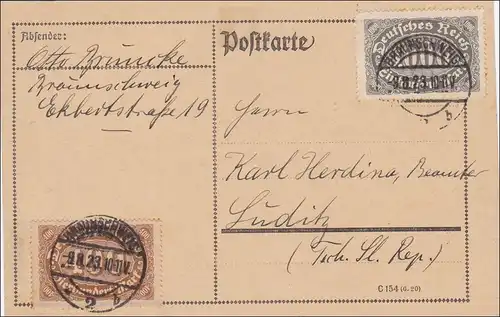 Absender:
Otto Brüncke
Braunschweig
Ekbertstraße 19
Postkarte
Deutsches Reich
BRAUNSCHWEIG
9.8.23.10-11V.
2 b
Herrn
Karl Herdina, Beamter
Luditz
(Tsch. Sl. Rep.)
BRAUNSCHWEIG
9.8.23.10-11V.
2 b
C 154 (6. 20)